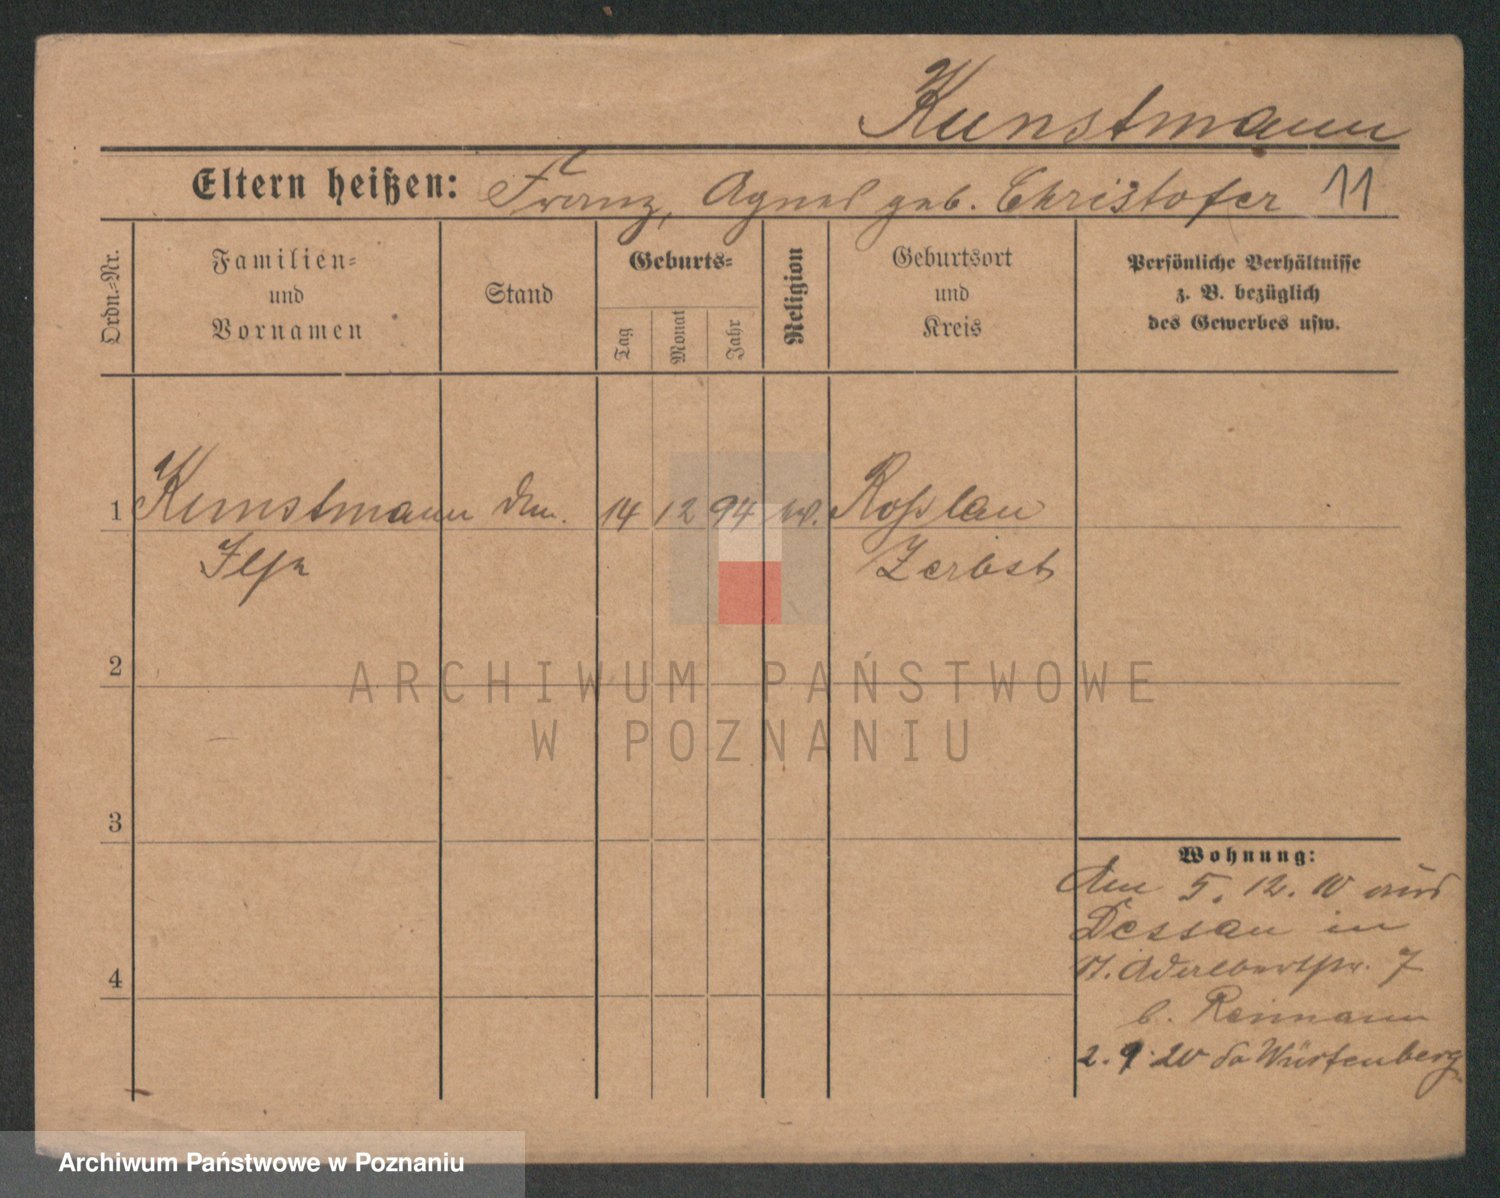 Kunstmann
Eltern heißen: Franz, Agnes geb. Christofer 11
Ordn.-Nr.
Familien-
und
Vornamen
Stand
Geburts-
Tag
Monat
Jahr
Religion
Geburtsort
und
Kreis
Persönliche Verhältnisse
z. B. bezüglich
des Gewerbes usw.
1 Kunstmann 14 12 94 Roßlau
Ilse Zerbst
2
3
4
Wohnung:
Am 5. 12. 10 aus
Dessau in
St. Adalbertstr. 7
b. Reimann
2. 9. 20 Würtenberg
ARCHIWUM PAŃSTWOWE
W POZNANIU
Archiwum Państwowe w Poznaniu